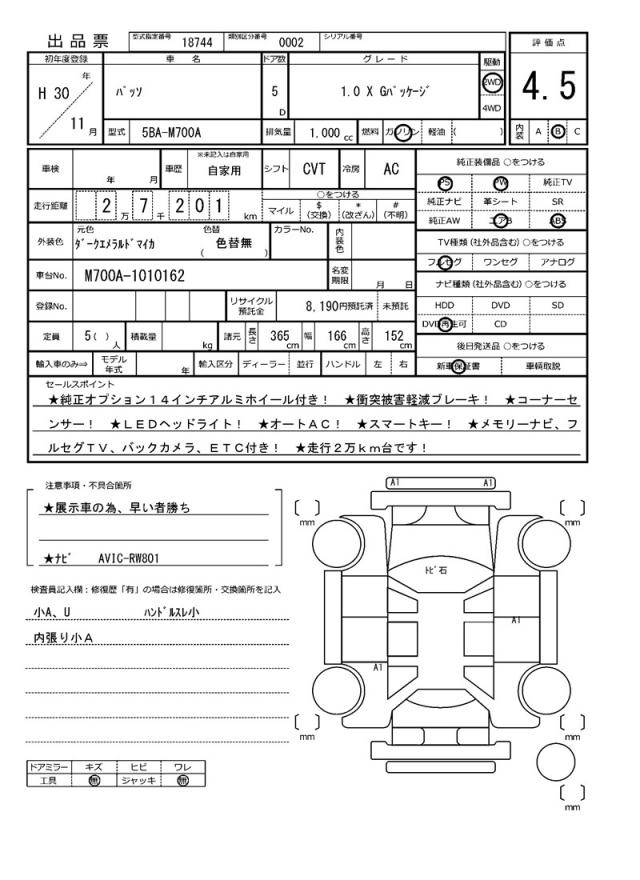 出品票 型式指定番号 18744 類別区分番号 0002 シリアル番号
評価点
4.5
内装 A B C
初年度登録 車名 ドア数 グレード 駆動
H 30 年 11 月 パッソ 5 D 1.0 X Gパッケージ 2WD 4WD
型式 5BA-M700A 排気量 1.000 cc 燃料 ガソリン 軽油 ( )
車検 年 月 車歴 ※未記入は自家用 自家用 シフト CVT 冷房 AC
走行距離 2 万 7 千 2 0 1 km ○をつける
マイル $ (交換) * (改ざん) # (不明)
外装色 元色 ダークエメラルドマイカ 色替 ( 色替無 ) カラーNo. 内装色
車台No. M700A-1010162 名変期限 月 日
登録No. リサイクル預託金 8,190円預託済 未預託
定員 5( ) 人 積載量 kg 諸元 長さ 365 cm 幅 166 cm 高さ 152 cm
輸入車のみ⇒ モデル年式 年 輸入区分 ディーラー 並行 ハンドル 左 右
純正装備品 ○をつける
PS PW 純正TV
純正ナビ 革シート SR
純正AW エアB ABS
TV種類(社外品含む) ○をつける
フルセグ ワンセグ アナログ
ナビ種類(社外品含む) ○をつける
HDD DVD SD
DVD再生可 CD
後日発送品 ○をつける
新車保証書 車輌取説
セールスポイント
★純正オプション14インチアルミホイール付き! ★衝突被害軽減ブレーキ! ★コーナーセ
ンサー! ★LEDヘッドライト! ★オートAC! ★スマートキー! ★メモリーナビ、フ
ルセグTV、バックカメラ、ETC付き! ★走行2万km台です!
注意事項・不具合箇所
★展示車の為、早い者勝ち
★ナビ AVIC-RW801
検査員記入欄:修復歴「有」の場合は修復箇所・交換箇所を記入
小A、U ハンドルスレ小
内張り小A
ドアミラー キズ ヒビ ワレ
工具 無 ジャッキ 無
A1 A1
mm mm
トビ石
A1
A1
mm mm
mm